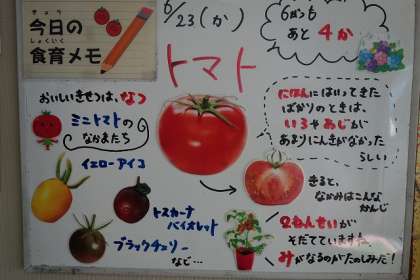 きょう
今日の
しょくいく
食育メモ
6/23(か)
6がつも
あと 4か
トマト
おいしいきせつは、なつ
ミニトマトの
なかまたち
イエローアイコ
トスカーナ
バイオレット
ブラックチェリー
など…
にほんにはいってきた
ばかりのときは、
いろやあじが
あまりにんきがなかった
らしい
きると、
なかみはこんな
かんじ
2ねんせいが
そだてています。
みがなるのがたのしみだ!